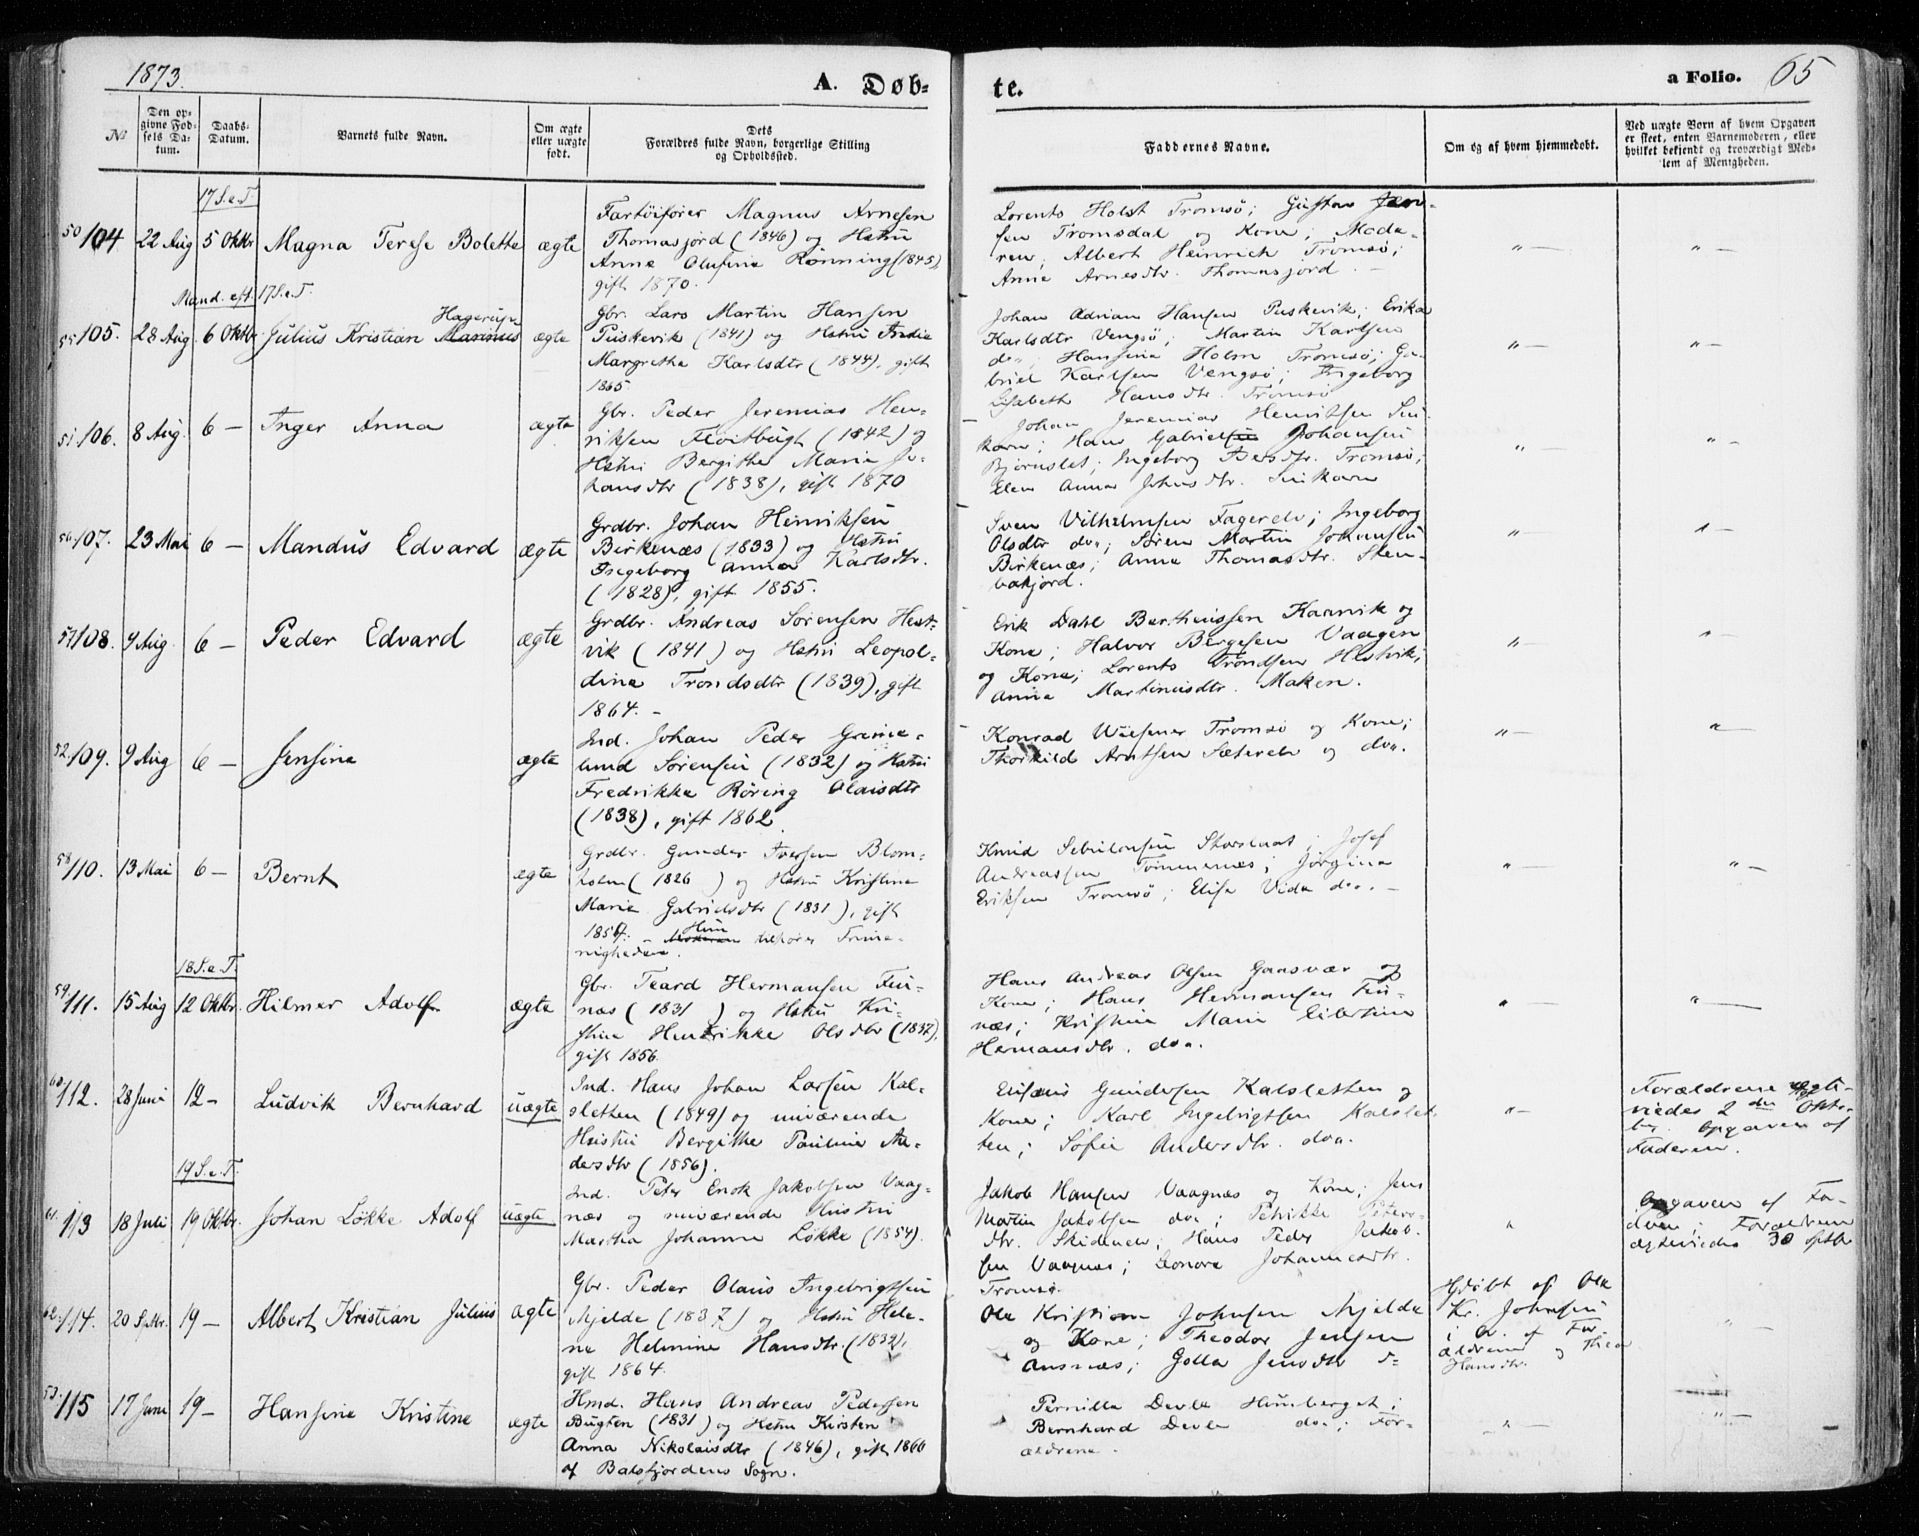 1873.
A. Døb-
te.
a Folio. 65
No
Den opgivne Fødsels Datum.
Daabs-Datum.
Barnets fulde Navn.
Om ægte eller uægte født.
Dets Forældres fulde Navn, borgerlige Stilling og Opholdssted.
Faddernes Navne.
Om og af hvem hjemmedøbt.
Ved uægte Born af hvem Opgaven er skeet, enten Barnemoderen, eller hvilket bekjendt og troværdigt Medlem af Menigheden.
17 S.e.T.
50 104. 22 Aug 5 Oktbr Magna Terese Bolette ægte
Fartøifører Magnus Arnesen
Thomasjord (1846) og Hstru
Anne Olufine Rønning (1845)
gift 1870.
Lorents Holst Tromsø; Gustav Jen-
sen Tromsdal og Kone; Mode-
ren; Albert Heinrich Tromsø;
Anne Arnesdtr. Thomasjord. —
" —
" —
Mand. eft. 17 S.e.T.
55 105. 28 Aug 6 Oktbr Julius Kristian Marinus Hagerup ægte
Gbr. Lars Martin Hansen
Puskevik (1841) og Hstru Andie
Margrethe Karlsdtr (1844), gift
1865.
Johan Adrian Hansen Puskevik; Erika
Karlsdtr Vengsø; Martin Karlsen
do.; Hansine Holm Tromsø; Ga-
briel Karlsen Vengsø; Ingeborg
Lisabeth Hansdtr. Tromsø
" —
" —
51 106. 8 Aug. 6 — Inger Anna ægte
Gbr. Peder Jeremias Hen-
riksen Fløitbugt (1842) og
Hstru Bergithe Marie Jo-
hansdtr (1838), gift 1870
Johan Jeremias Henriksen
; Hans Gabriel Johansen
Bjørnslet; Ingeborg Tromsø;
Ellen Anna Johnsdtr.
" —
" —
56 107. 23 Mai 6 — Mandus Edvard ægte
Grdbr. Johan Heinriksen
Birkenæs (1833) og Hstru
Ingeborg Anna Karlsdtr.
(1828), gift 1855.
Sven Vilhelmsen Fagerelv; Ingeborg
Olsdtr do.; Søren Martin Johansen
Birkenæs; Anna Thomasdtr. Sten-
bakjord.
" —
" —
57 108. 9 Aug. 6 — Peder Edvard ægte
Grdbr. Andreas Sørensen Hest-
vik (1841) og Hstru Leopol-
dine Trondsdtr (1839), gift
1864. —
Erik Dahl Bertheussen Kaarvik og
Kone; Halvor Bergesen Vaagen
og Kone; Lorents Trondsen Hestvik;
Anna Martinusdtr. Maken.
" —
" —
52 109. 9 Aug 6 — Jensine ægte
Ind. Johan Peder Grøne-
lund Sørensen (1832) og Hstru
Fredrikke Røring Olaisdtr
(1838), gift 1862.
Konrad Tromsø og Kone;
Thorkild Arntsen Sæterelv og do.
" —
" —
58 110. 13 Mai 6 — Bernt ægte
Grdbr. Gunder Iversen Blom-
holm (1826) og Hstru Kristine
Marie Gabrielsdtr (1831), gift
Hun tilhører Trine-
nigheden.
Storslaat; Josef
Andreassen Tønnesnæs; Jørgine
Eriksen Tromsø; Elise Vida do. —
" —
" —
18 S.e.T.
59 111. 15 Aug 12 Oktbr. Hilmer Adolf ægte
Gbr. Teard Hermansen Fin-
næs (1831) og Hstru Kri-
stine Hendrikke Olsdtr (1832),
gift 1856.
Hans Andreas Olsen Gaasvær og
Kone; Hans Hermansen Fin-
næs; Kristine Marie Elbertine
Hermansdtr. do.
" —
" —
60 112. 28 Juni 12 — Ludvik Bernhard uægte
Ind. Hans Johan Larsen Kal-
sletten (1849) og nuværende
Hustru Bergithe Pauline An-
dersdtr (1856).
Gundersen Kalsletten og
Kone; Karl Ingebrigtsen Kalslet-
ten; Sofie Andersdtr. do.
" —
Forældrene ægte-
viedes 2den Okto-
br. Opgaven af
Faderen.
19 S.e.T.
61 113 18 Juli 19 Oktbr. Johan Løkke Adolf uægte
Ind. Peter Enok Jakobsen Vaag-
næs og nuværende Hustru
Martha Johanna Løkke (1854).
Jakob Hansen Vaagnæs og Kone; Jens
Martin Jakobsen do; Petrikke Peters-
dtr. Skidenelv; Hans Peder Jakob-
sen Vaagnæs; Leonora Johannesdtr.
Tromsø.
"
Opgaven af Fa-
deren; Forældrene
ægteviedes 30 Septbr
62 114. 20 Sptbr. 19 — Albert Kristian Julius ægte
Gbr. Peder Olaus Ingebrigtsen
Mjelde (1837) og Hstru Hele-
ne Helmine Hansdtr. (1832),
gift 1864.
Ole Kristian Johnsen Mjelde
og Kone; Theodor Jensen
Ansnæs; Golla Jensdtr d=
Hjdøbt af Ole
Kr. Johnsen
i Ov. af For-
ældrene og Thea
Hansdtr.
" —
53 115 17 Juni 19 — Hansine Kristine ægte
Hmd. Hans Andreas Pedersen
Bugten (1831) og Hstru Kirsten
Anna Nikolaisdtr (1846), gift 1866
af Balsfjordens Sogn.
Pernilla Devle Himberget;
Bernhard Devle do.; For-
ældrene.
" —
" —